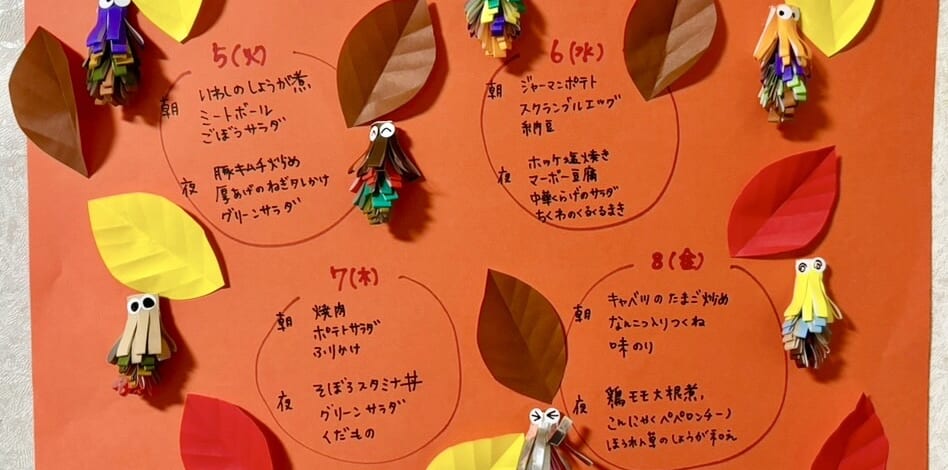 5(火)
朝
いわしのしょうが煮
ミートボール
ごぼうサラダ
夜
豚キムチ炒め
厚あげのねぎタレかけ
グリーンサラダ
6(水)
朝
ジャーマンポテト
スクランブルエッグ
納豆
夜
ホッケ塩焼き
マーボー豆腐
中華くらげのサラダ
ちくわのくるくるまき
7(木)
朝
焼肉
ポテトサラダ
ふりかけ
夜
そぼろスタミナ丼
グリーンサラダ
くだもの
8(金)
朝
キャベツのたまご炒め
なんこつ入りつくね
味のり
夜
鶏モモ大根煮
こんにゃくペペロンチーノ
ほうれん草のしょうが和え